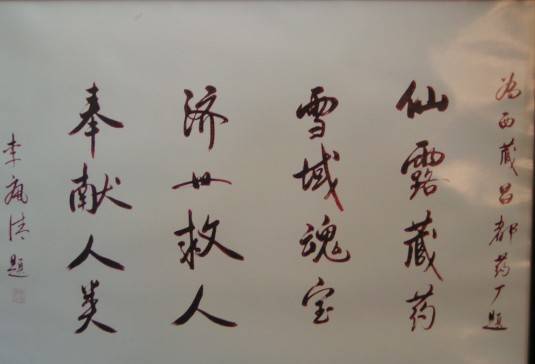 为西藏昌都药厂题
仙露藏药
雪域魂宝
济世救人
奉献人类
李瑞清题